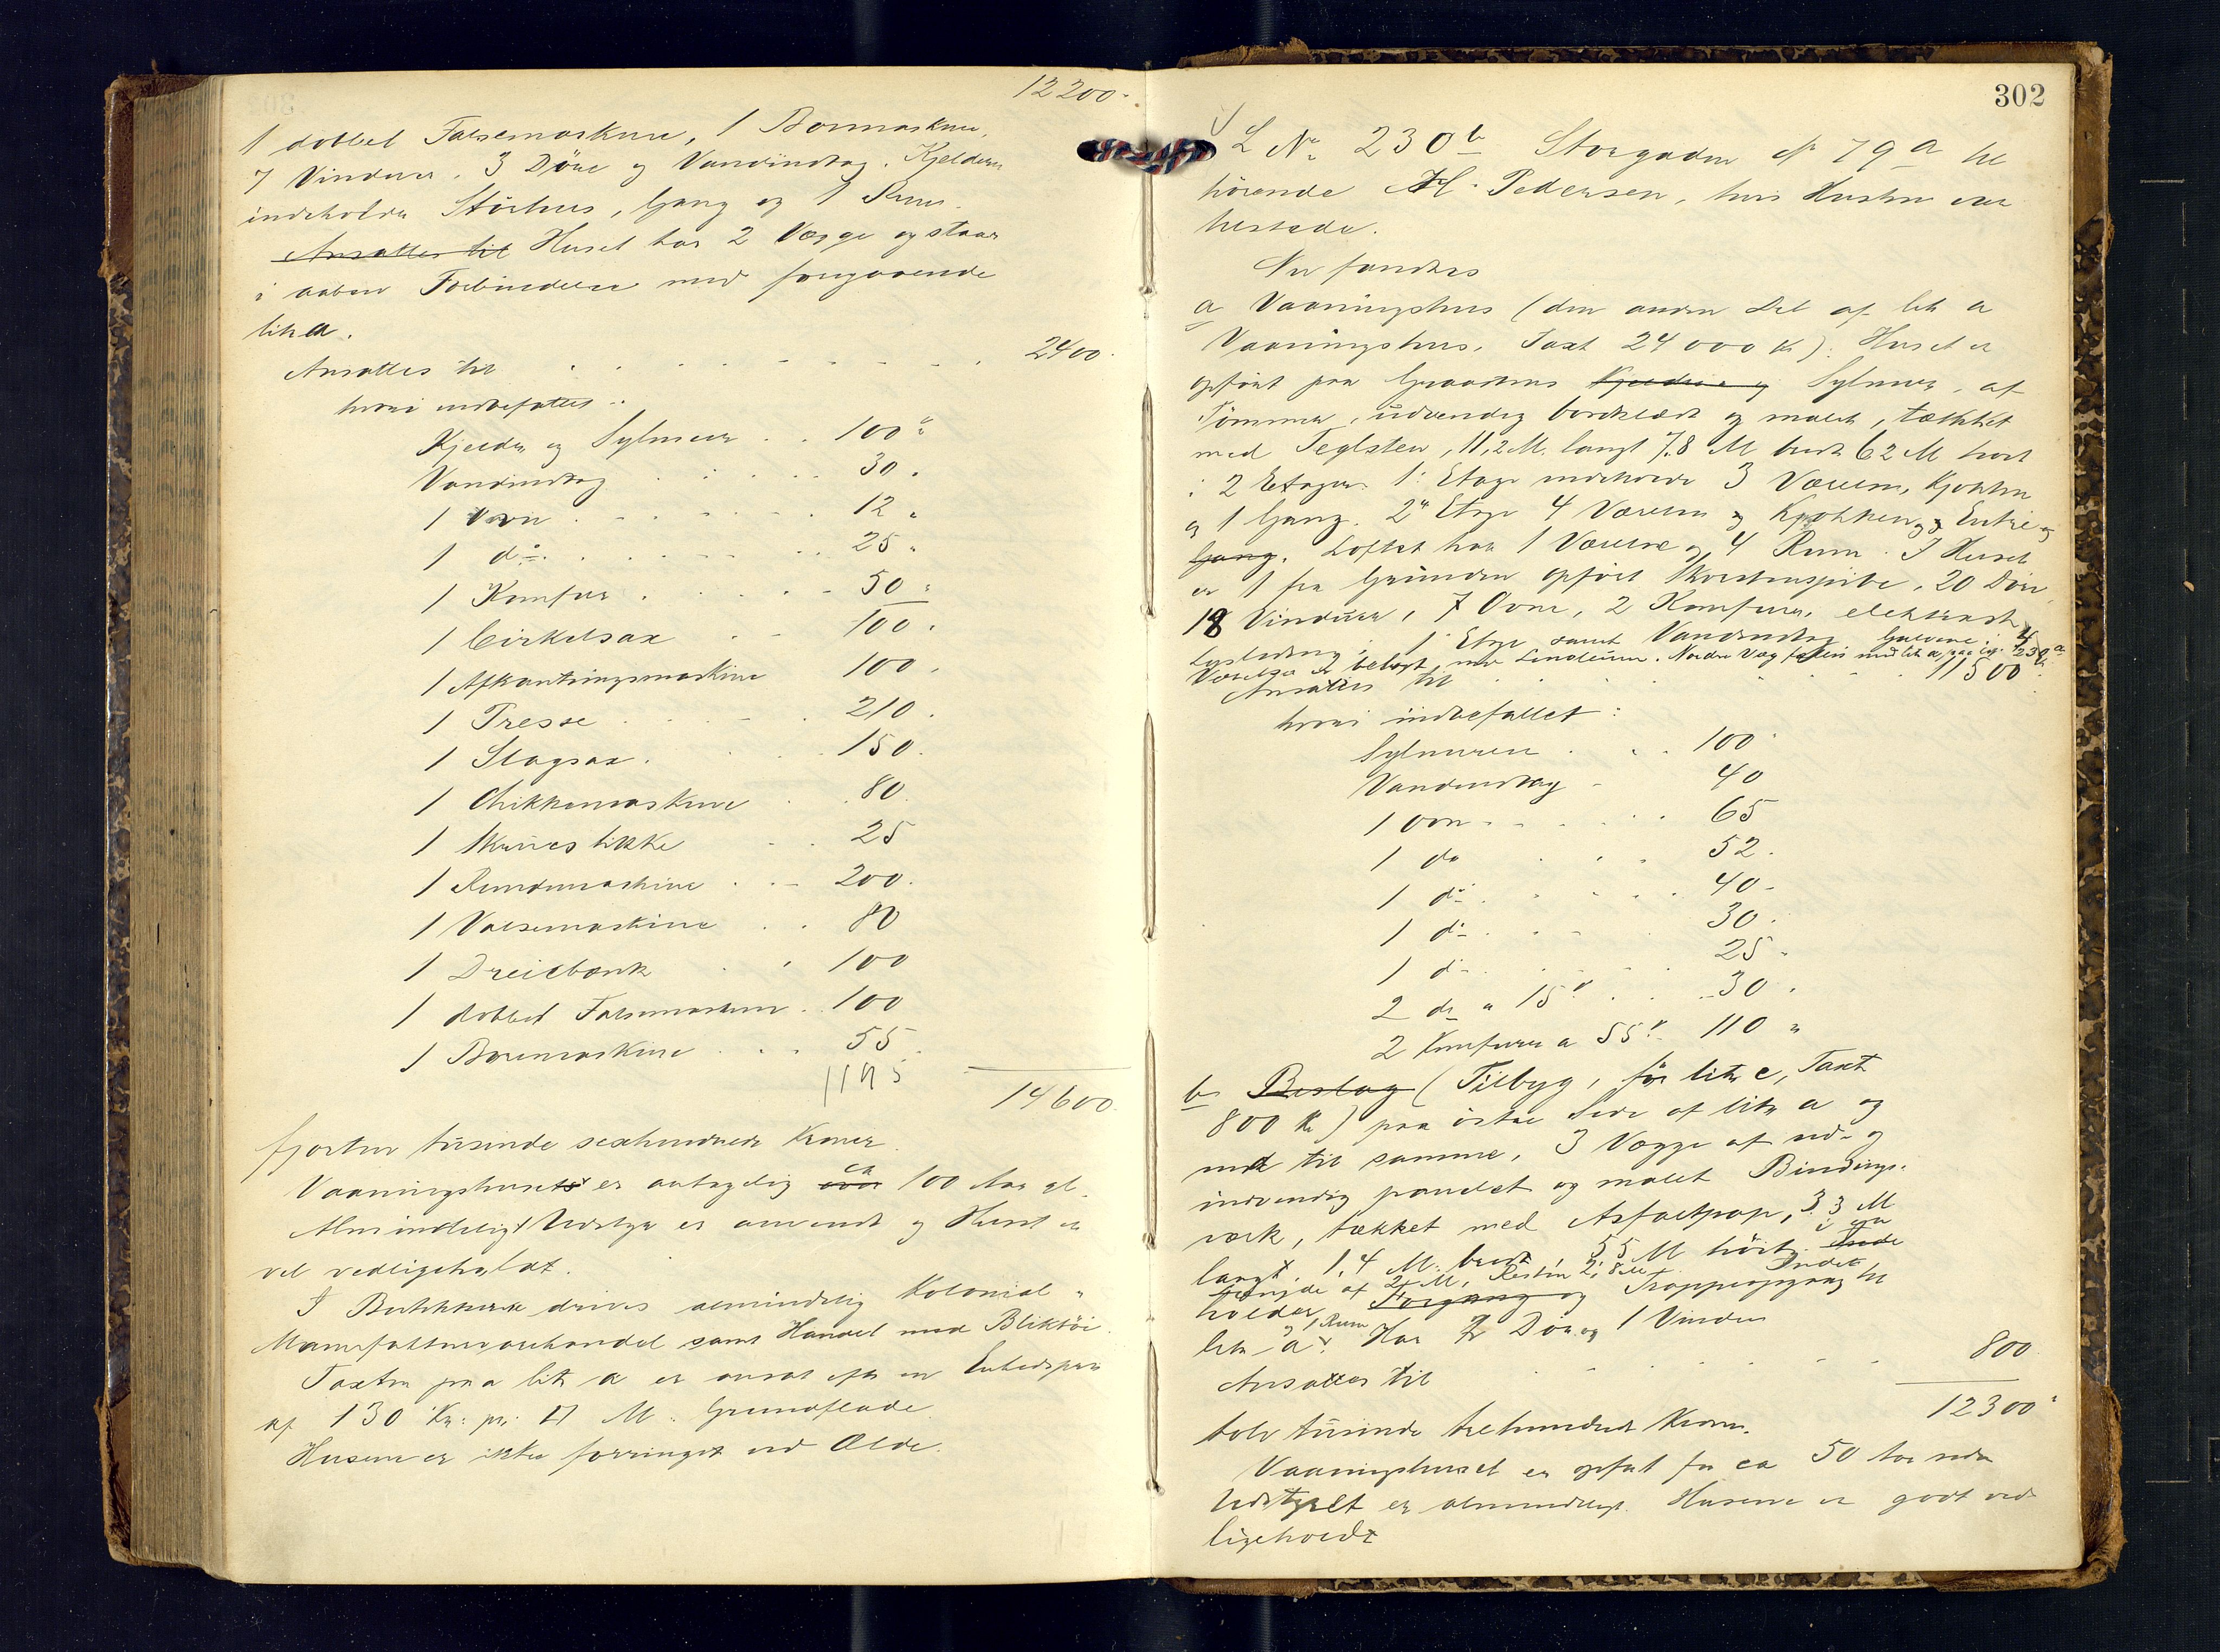 12200.
1 dobbel Falsemaskine, 1 Boremaskine,
7 Vinduer, 3 Döre og Vandindtag. Kjelderen
indeholder Störhus, Gang og 1 Rum.
Ansættes til Huset har 2 Vægge og staar
i aaben Forbindelse med foregaaende
litr a.
Ansættes til . . . . . . . 2400.
hvori indbefattet:
Kjelder og Sylmur . . 100 "
Vandindtag . . . . 30.
1 Ovn . . . . . . 12 "
1 do. . . . . . . 25 "
1 Komfur . . . . . 50 "
1 Cirkelsax . . 100.
1 Afkantningsmaskine 100.
1 Presse . . . . 210.
1 Slagsax . . . 150.
1 Sikkemaskine . . 80.
1 Skruestikke . . 25
1 Rundmaskine . . 200.
1 Valsemaskine . . 80
1 Dreiebænk . . 100
1 dobbel Falsemaskine . 100
1 Boremaskine . . . 55.
14600.
fjorten tusinde sexhundrede Kroner.
Vaaningshuset er antagelig ca 100 Aar gl.
Almindeligt Udstyr er anvendt og Huset er
vel vedligeholdt.
I Butikkerne drives almindelig Kolonial "
Manufakturvarehandel samt Handel med Bliktöi.
Taxten paa litr a er ansat efter en Enhedspris
af 130 Kr: pr: □ M. Grundflade.
Husene er ikke forringet ved Ælde.
302
L No 230b Storgaden No 79a til
hörende M. Pedersen, hvis Hustru var
tilstede.
Nu fandtes
a Vaaningshus (den anden Del af litr a
Vaaningshus, Taxt 24000 Kr). Huset er
opfört paa Graastens Kjelder og Sylmur, af
Tömmer, udvendig bordklædt og malet, tækket
med Teglsten, 11,2 M. langt 7,8 M bredt 6,2 M höit
i 2 Etager. 1' Etage indeholder 3 Værelser, Kjökken
og 1 Gang. 2' Etage 4 Værelser og Kjökken og Entre og
Gang. Loftet har 1 Værelse og 4 Rum. I Huset
er 1 fra Grunden opfört Skorstenspibe, 20 Döre
18 Vinduer, 7 Ovne, 2 Komfurer, elektrisk
Lysledning i 1' Etage samt Vandindtag. Gulvene i 4
Værelser er belagt med Linoleum. Nordre Væg fælles med litr a paa Lno 230a
Ansættes til . . . . . . . 11500.
hvori indbefattet:
Sylmuren . . . 100 "
Vandindtag . 40
1 Ovn . . . . . 65
1 do . . . 52.
1 do . . . . 40.
1 do . . . . 30.
1 do . . . . . 25.
2 do a 15 Kr . . . 30.
2 Komfurer a 55 Kr. 110 "
b Beslag (Tilbyg, för litr c, Taxt
800 Kr) paa östre Side af litr a og
ind til samme, 3 Vægge af ud- og
indvendig panelet og malet Bindings-
værk, tækket med Asfaltpap, 3,3 M
langt, 1,4 M. bredt, 5,5 M höit i en
Længde af 2,1 M, Resten 2,8 M. Inde
holder Forgang og Trappeopgang til
litr a og 1 Rum. Har 2 Döre og 1 Vindu
Ansættes til . . . . . . 800.
12300 "
tolv tusinde trehundrede Kroner.
Vaaningshuset er opfört for ca 50 Aar siden
Udstyret er almindeligt. Husene er godt ved-
ligeholdt